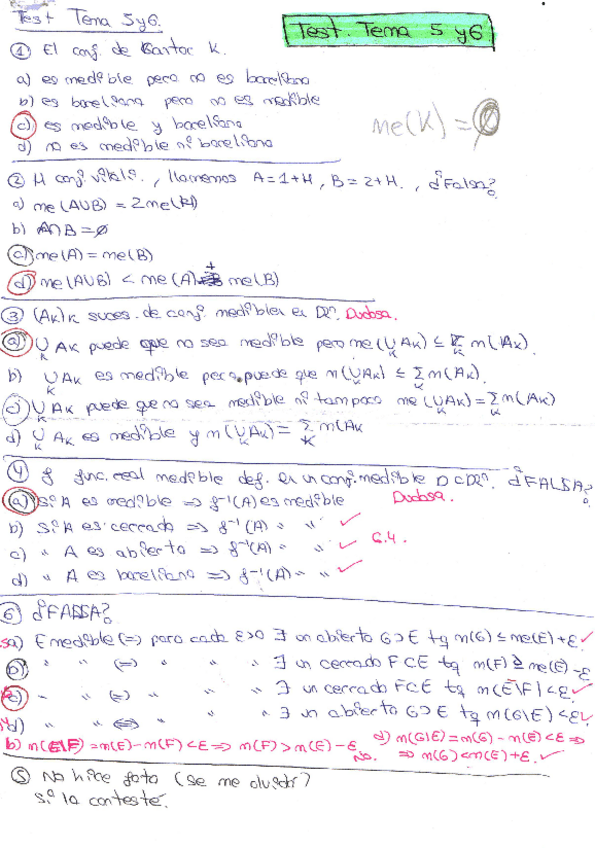 Test Tema 5 y 6.
Test. Tema 5 y 6
① El conj. de Cantor K.
a) es medible pero no es boreliano
b) es boreliano pero no es medible
c) es medible y boreliano
d) no es medible ni boreliano
me(K) = 0
② H conj. Vitali., llamemos A = 1+H, B = 2+H. , ¿Falsa?
a) me(A∪B) = 2me(H)
b) A∩B = ∅
c) me(A) = me(B)
d) me(A∪B) < me(A) + me(B)
③ (Ak)k suces. de conj. medibles en ℝⁿ. Dudosa.
a) ∪k Ak puede que no sea medible pero me(∪k Ak) ≤ Σk m(Ak).
b) ∪k Ak es medible pero puede que m(∪k Ak) ≤ Σk m(Ak).
c) ∪k Ak puede que no sea medible ni tampoco me(∪k Ak) = Σk m(Ak)
d) ∪k Ak es medible y m(∪k Ak) = Σk m(Ak
④ f func. real medible def. en un conj. medible D⊂ℝⁿ. ¿FALSA?
a) Si A es medible ⇒ f⁻¹(A) es medible Dudosa.
b) Si A es cerrado ⇒ f⁻¹(A) " " ✓
c) " A es abierto ⇒ f⁻¹(A) " " ✓ 6.4.
d) " A es boreliano ⇒ f⁻¹(A) " " ✓
⑥ ¿FALSA?
a) E medible (=) para cada ε>0 ∃ un abierto G⊃E tq m(G) ≤ me(E)+ε ✓
b) " " (=) " " " ∃ un cerrado F⊂E tq m(F) ≥ me(E) - ε
c) " " (=) " " " ∃ un cerrado F⊂E tq m(E\F) < ε ✓
d) " " ⇔ " " " ∃ un abierto G⊃E tq m(G\E) < ε ✓
b) m(E\F) = m(E) - m(F) < ε ⇒ m(F) > m(E) - ε No.
d) m(G\E) = m(G) - m(E) < ε ⇒
⇒ m(G) < m(E) + ε. ✓
⑤ No hice foto (se me olvidó)
Si la contesté.